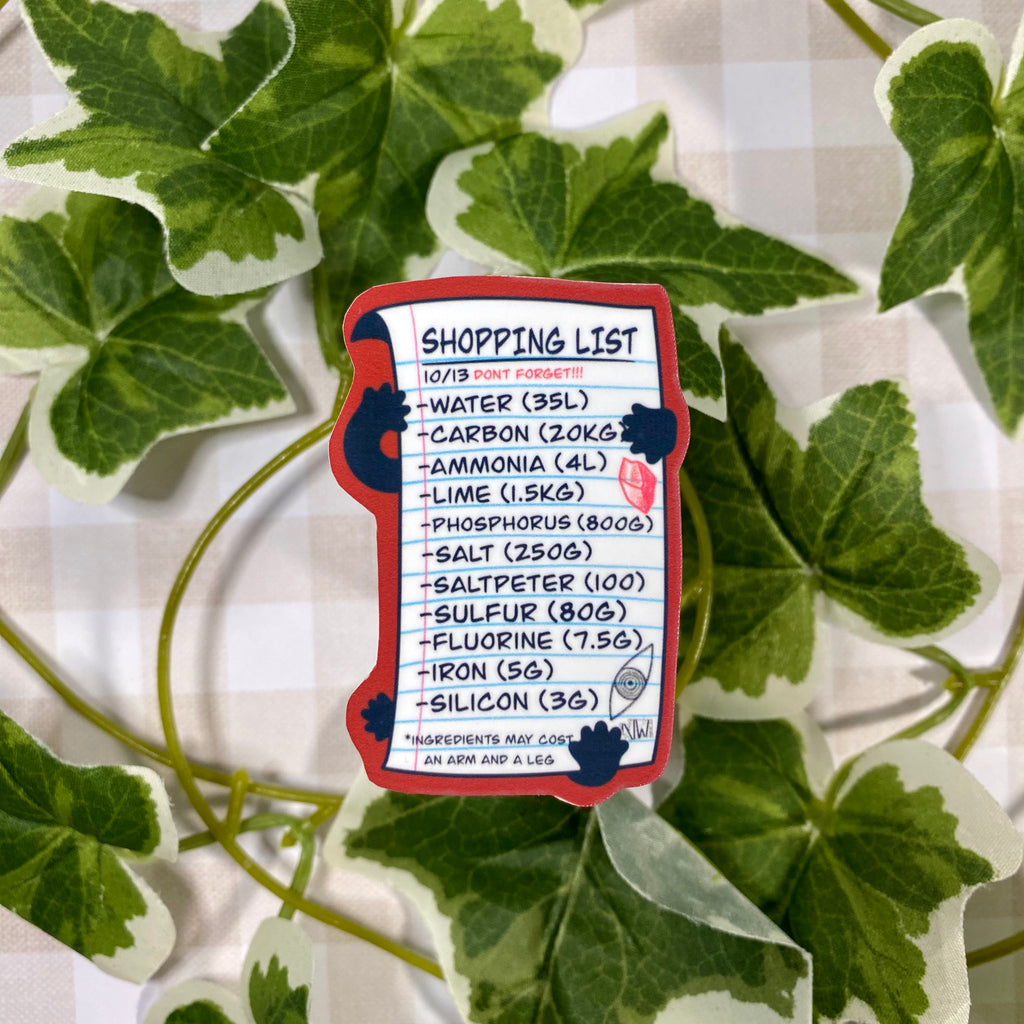 SHOPPING LIST
10/13 DONT FORGET!!!
-WATER (35L)
-CARBON (20KG
-AMMONIA (4L)
-LIME (1.5KG)
-PHOSPHORUS (800G)
-SALT (250G)
-SALTPETER (100)
-SULFUR (80G)
-FLUORINE (7.5G)
-IRON (5G)
-SILICON (3G)
NW
*INGREDIENTS MAY COST
AN ARM AND A LEG